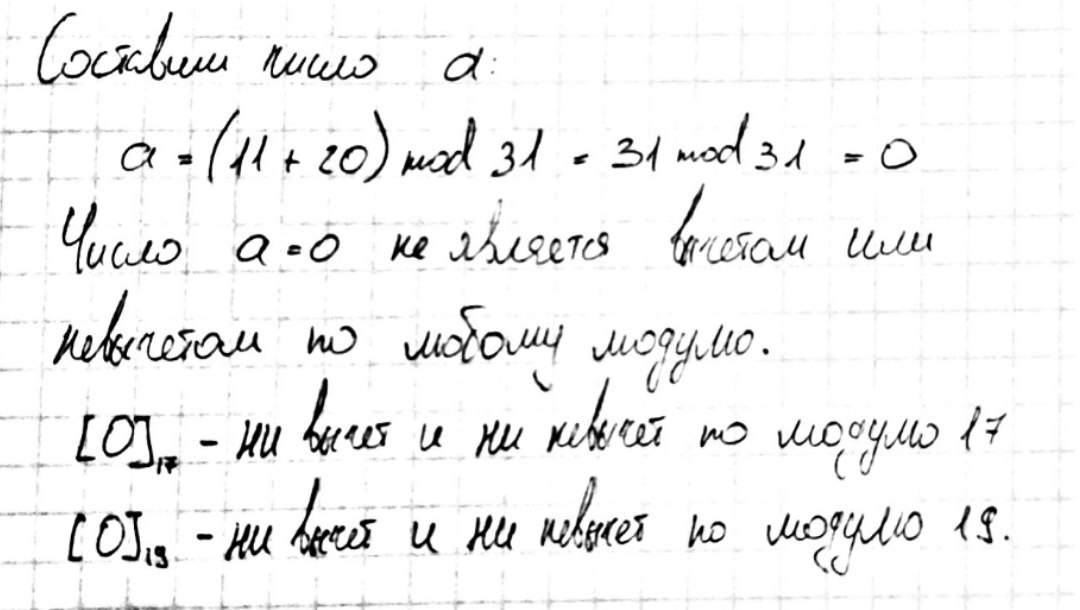 Составим число a:
a = (11 + 20) mod 31 = 31 mod 31 = 0
Число a = 0 не является вычетом или
невычетом по любому модулю.
[0]₁₇ - ни вычет и ни невычет по модулю 17
[0]₁₉ - ни вычет и ни невычет по модулю 19.